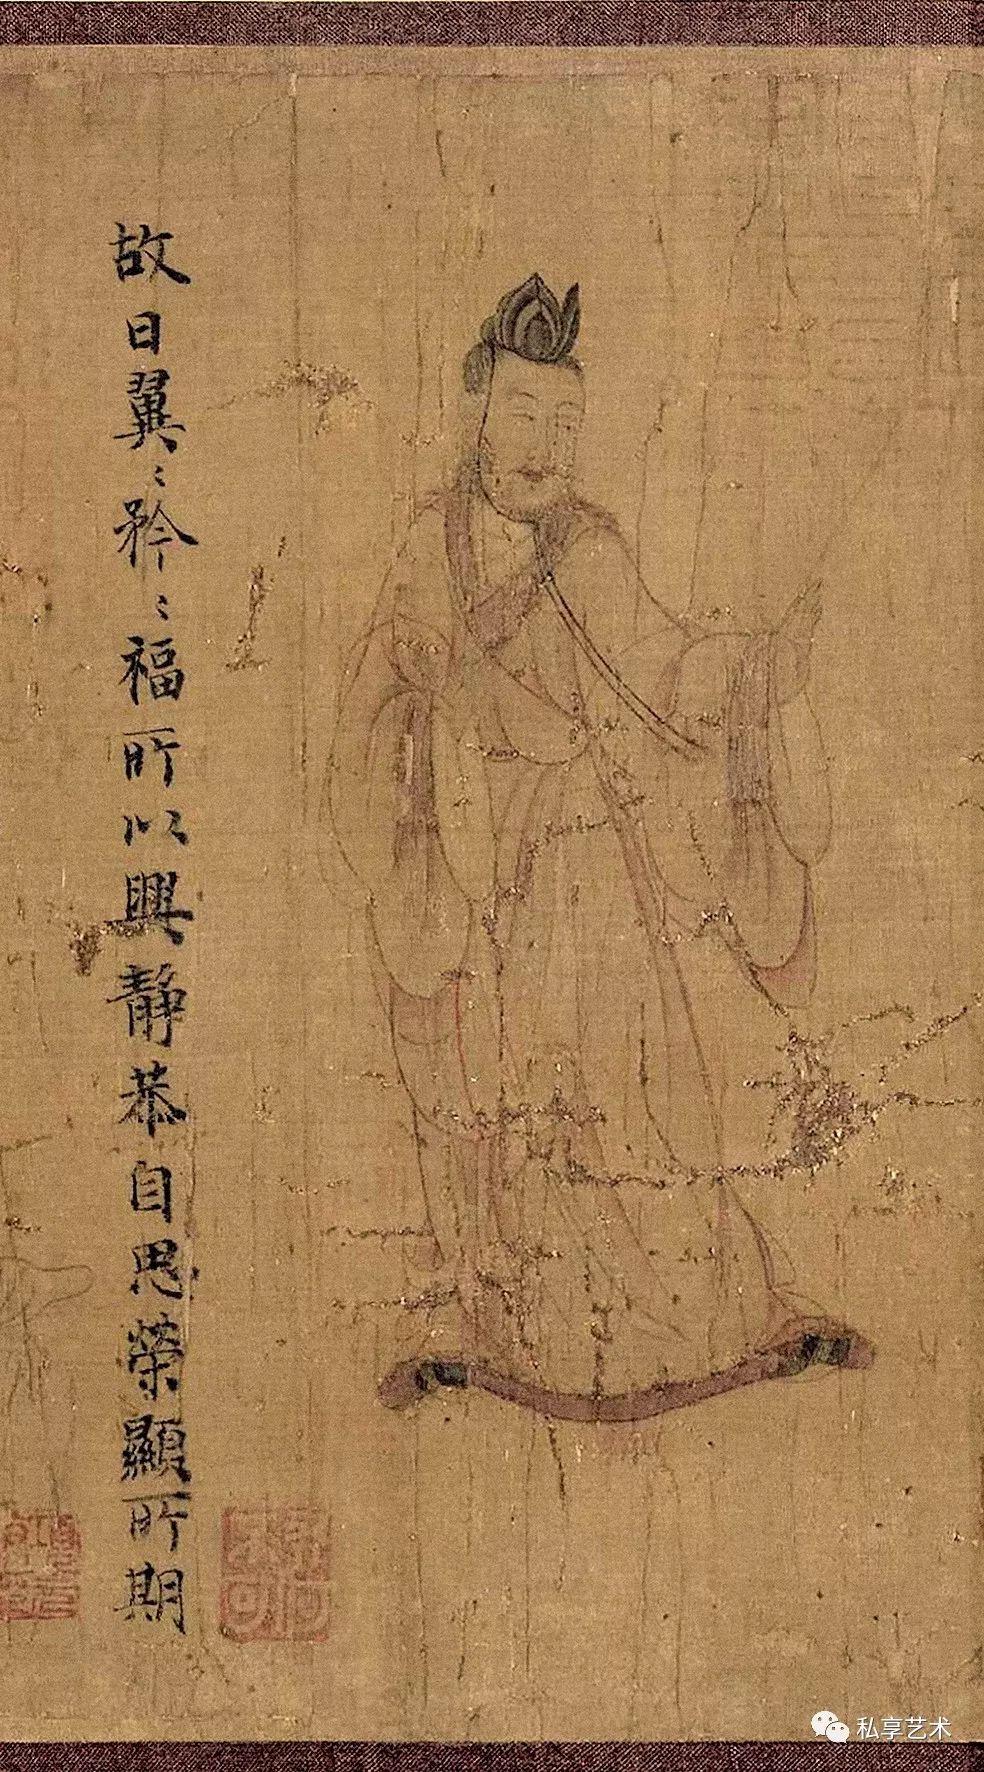 故曰翼〻矜〻福所以興静恭自思榮顯所期
私享艺术